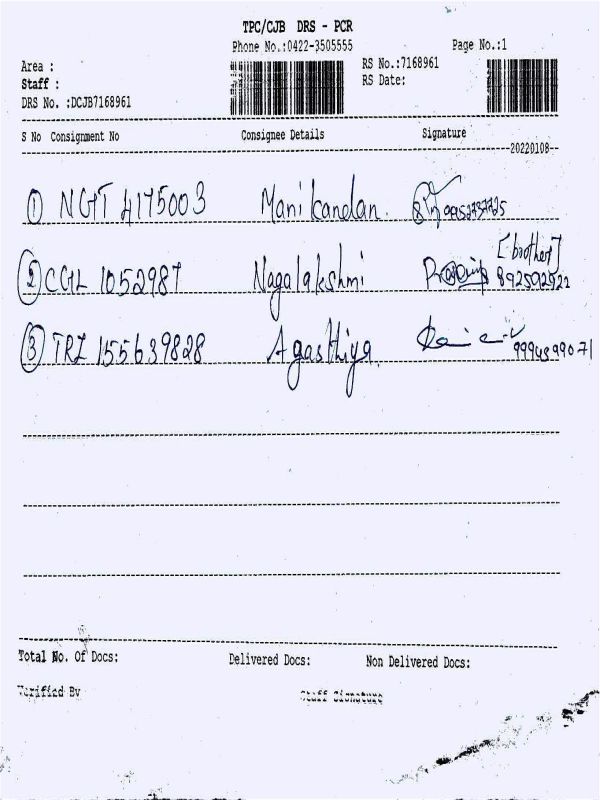 TPC/CJB DRS - PCR
Phone No.:0422-3505555
Page No.:1
Area :
RS No.:7168961
Staff :
RS Date:
DRS No. :DCJB7168961
S No Consignment No Consignee Details Signature
20220108
1 NGT 4175003 Manikandan.
[brother]
2 CGL 1052987 Nagalakshmi
3 TRZ 155639828 Agasthiya.
Total No. Of Docs: Delivered Docs: Non Delivered Docs:
Verified By Staff Signature